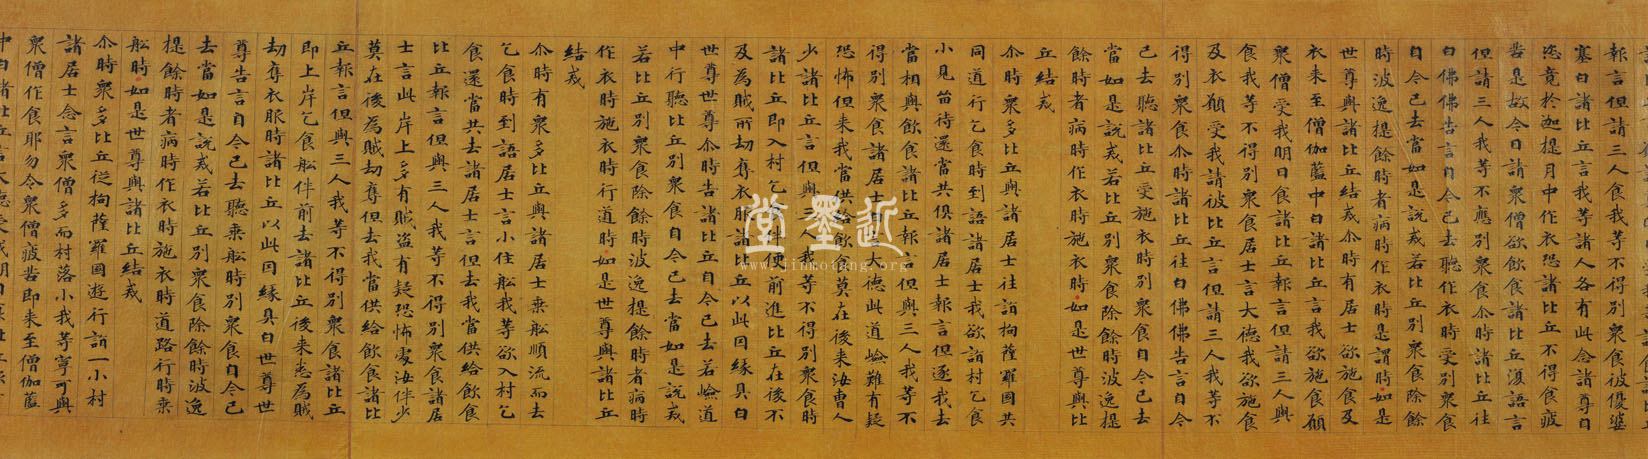 報言但請三人食我等不得別眾食彼優婆
塞白諸比丘言我等諸人各有此念諸尊自
恣竟於迦提月中作衣恐諸比丘不得食疲
苦是故今日請眾僧欲飲食諸比丘復語言
但請三人我等不應別眾食尒時諸比丘往
白佛佛告言自今已去聽作衣時受別眾食
自今已去當如是說戒若比丘別眾食除餘
時波逸提餘時者病時作衣時是謂時如是
世尊與諸比丘結戒尒時有居士欲施食及
衣来至僧伽藍中白諸比丘言我欲施食願
眾僧受我明日食諸比丘報言但請三人與
食我等不得別眾食居士言大德我欲施食
及衣願受我請彼比丘言但請三人我等不
得別眾食尒時諸比丘往白佛佛告言自今
已去聽諸比丘受施衣時別眾食自今已去
當如是說戒若比丘別眾食除餘時波逸提
餘時者病時作衣時施衣時如是世尊與比
丘結戒
尒時眾多比丘與諸居士往詣拘薩羅國共
同道行乞食時到語諸居士我欲詣村乞食
小見留待還當共俱諸居士報言但逐我去
當相與飲食諸比丘報言但與三人我等不
得別眾食諸居士白大德此道嶮難有疑
恐怖但来我當供給飲食莫在後来汝曹人
少諸比丘言但與三人我等不得別眾食時
諸比丘即入村乞食伴便前進比丘在後不
及為賊所劫奪衣服諸比丘以此因緣具白
世尊世尊尒時告諸比丘自今已去若嶮道
中行聽比丘別眾食自今已去當如是說戒
若比丘別眾食除餘時波逸提餘時者病時
作衣時施衣時行道時如是世尊與諸比丘
結戒
尒時有眾多比丘與諸居士乘船順流而去
乞食時到語居士言小住船我等欲入村乞
食還當共去諸居士言但去我當供給飲食
比丘報言但與三人我等不得別眾食諸居
士言此岸上多有賊盜有疑恐怖處汝伴少
莫在後為賊劫奪但去我當供給飲食諸比
丘報言但與三人我等不得別眾食諸比丘
即上岸乞食船伴前去諸比丘後来悉為賊
劫奪衣服時諸比丘以此因緣具白世尊世
尊告言自今已去聽乘船時別眾食自今已
去當如是說戒若比丘別眾食除餘時波逸
提餘時者病時作衣時施衣時道路行時乘
船時如是世尊與諸比丘結戒
尒時眾多比丘從拘薩羅國遊行詣一小村
諸居士念言眾僧多而村落小我等寧可與
眾僧作食耶勿令眾僧疲苦即来至僧伽藍
近墨堂
www.jinmotang.org